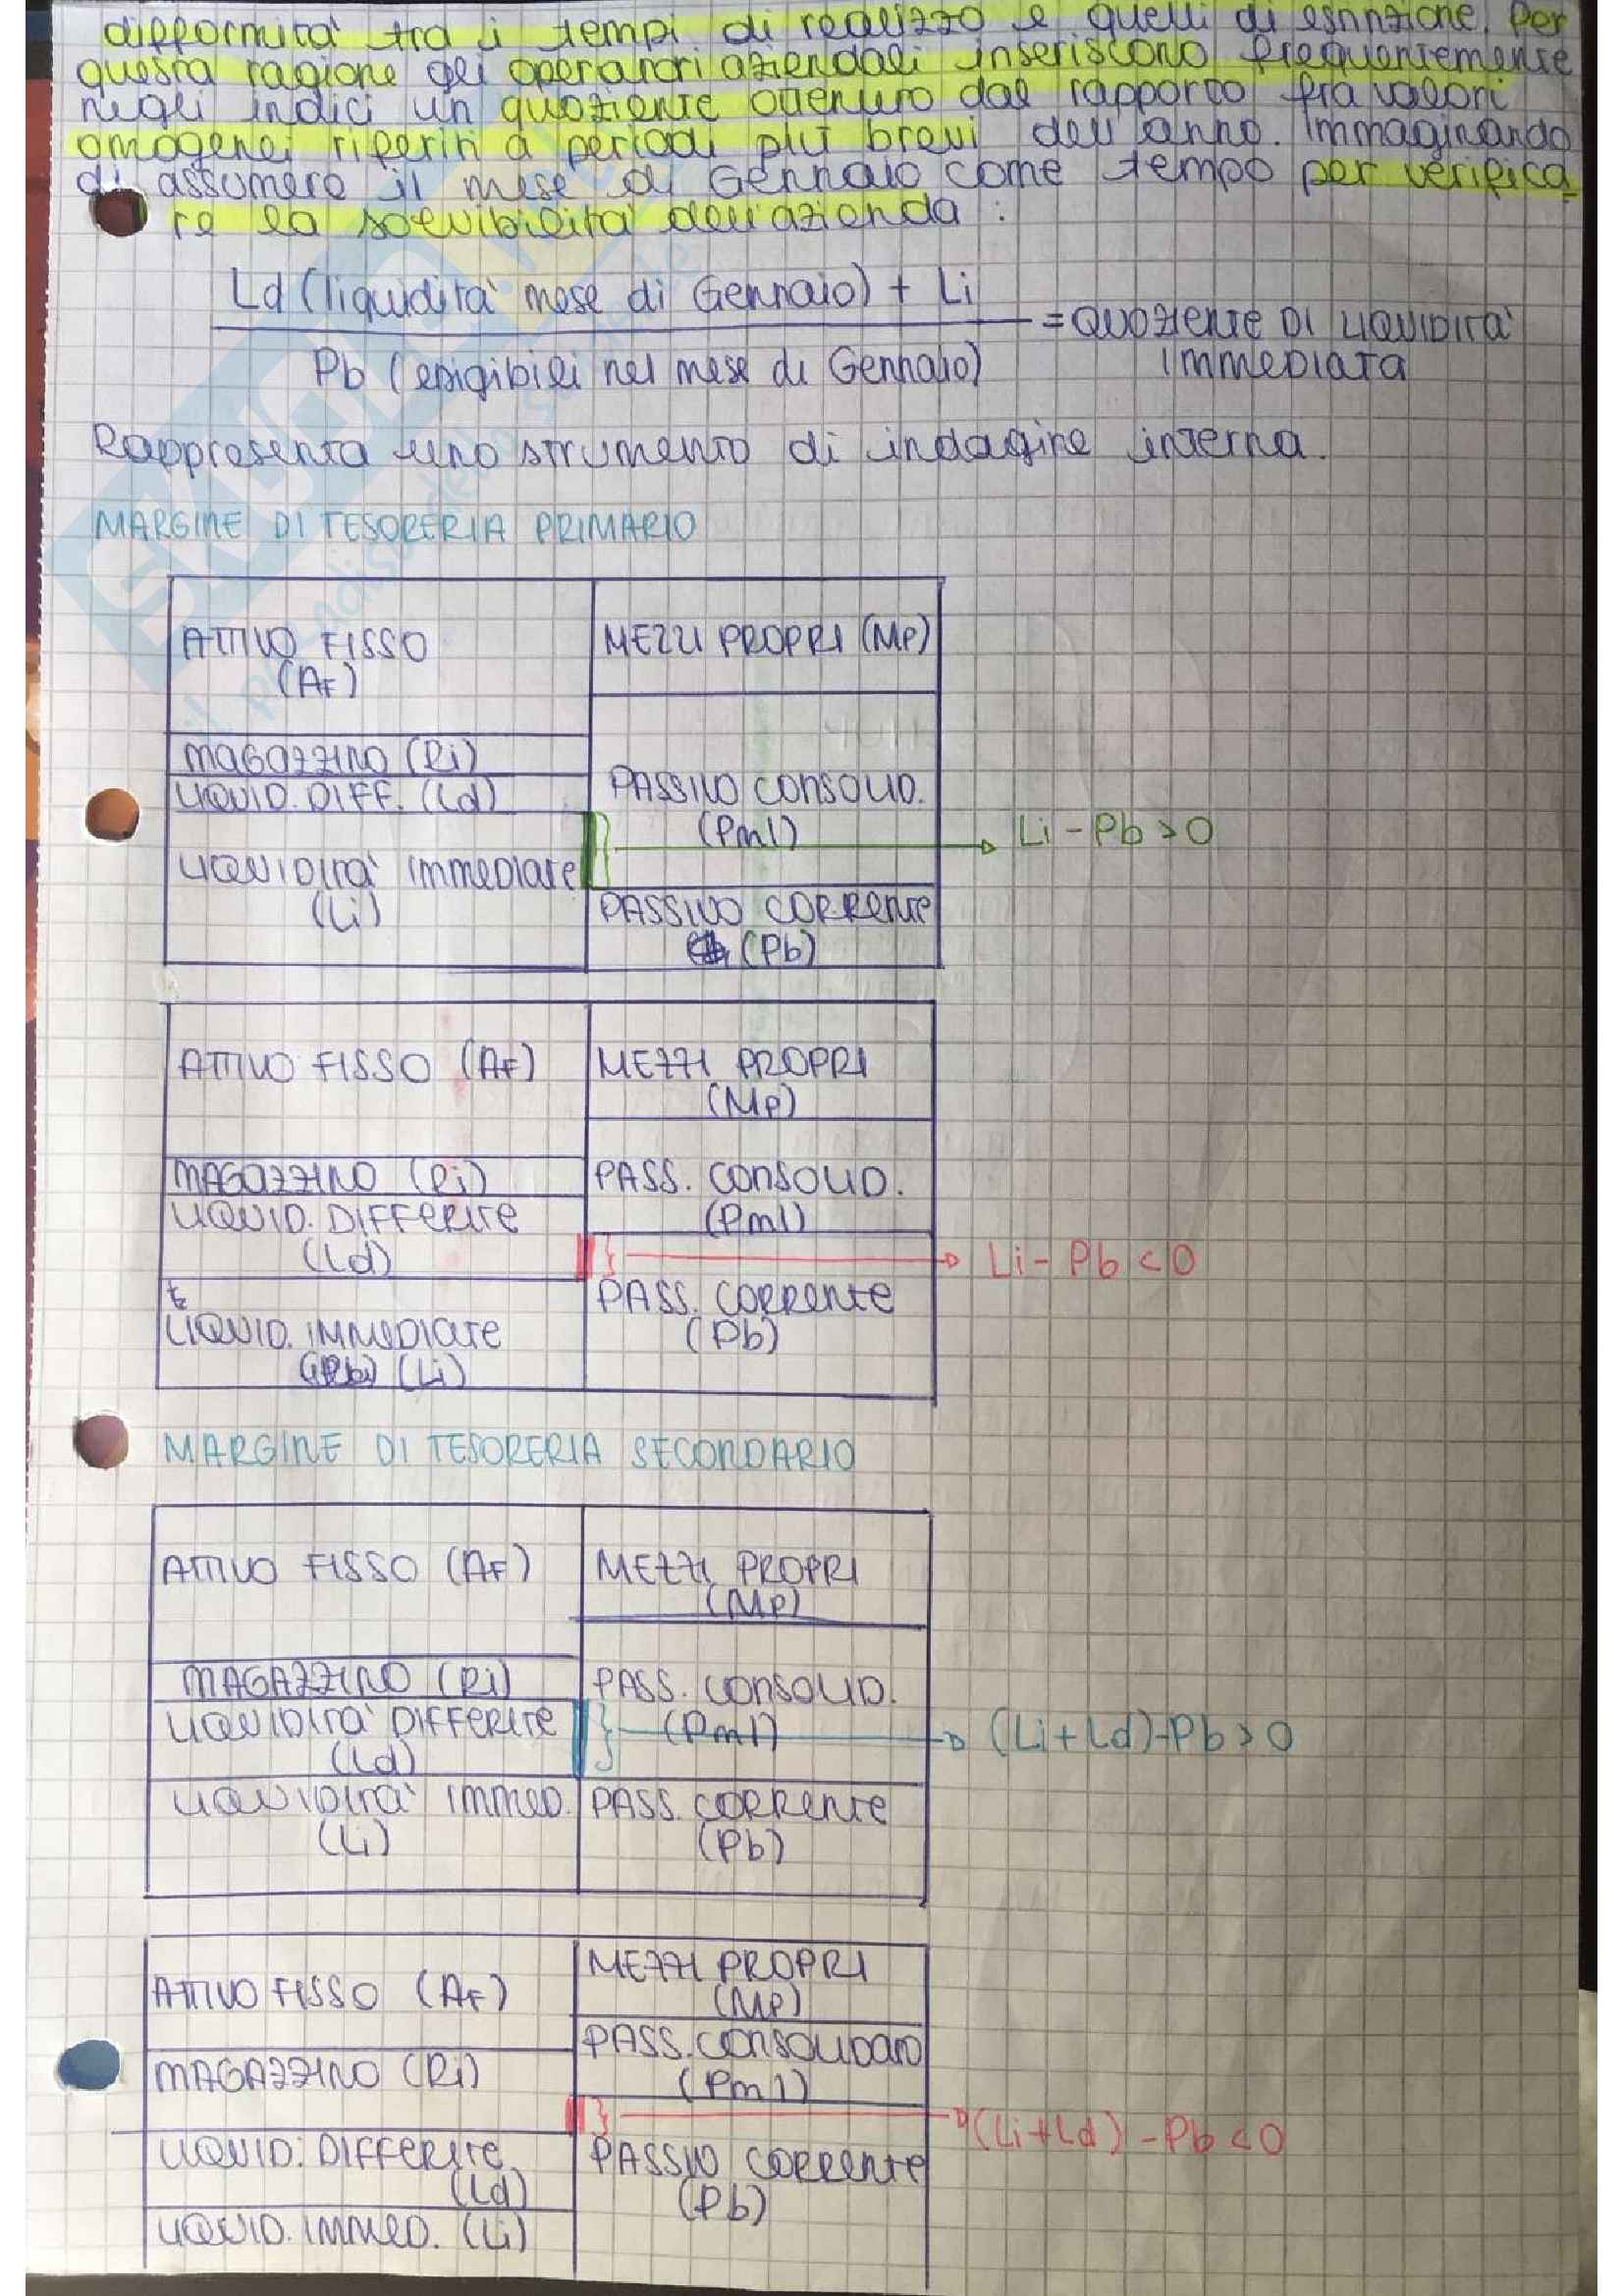 difformità tra i tempi di realizzo e quelli di estinzione. Per
questa ragione gli operatori aziendali inseriscono frequentemente
negli indici un quoziente ottenuto dal rapporto fra valori
omogenei riferiti a periodi più brevi dell'anno. Immaginando
di assumere il mese di Gennaio come tempo per verifica
re la solvibilità dell'azienda:
Ld (liquidità mese di Gennaio) + Li
Pb (esigibili nel mese di Gennaio)
= QUOZIENTE DI LIQUIDITA'
IMMEDIATA
Rappresenta uno strumento di indagine interna.
MARGINE DI TESORERIA PRIMARIO
ATTIVO FISSO
(AF)
MEZZI PROPRI (MP)
MAGAZZINO (Ri)
LIQUID. DIFF. (Ld)
PASSIVO CONSOLID.
(Pml)
Li - Pb > 0
LIQUIDITA' IMMEDIATE
(Li)
PASSIVO CORRENTE
(Pb)
ATTIVO FISSO (AF)
MEZZI PROPRI
(MP)
MAGAZZINO (Ri)
PASS. CONSOLID.
(Pml)
LIQUID. DIFFERITE
(Ld)
Li - Pb < 0
PASS. CORRENTE
(Pb)
LIQUID. IMMEDIATE
(Li)
MARGINE DI TESORERIA SECONDARIO
ATTIVO FISSO (AF)
MEZZI PROPRI
(MP)
MAGAZZINO (Ri)
PASS. CONSOLID.
(Pml)
LIQUIDITA' DIFFERITE
(Ld)
(Li+Ld)-Pb > 0
LIQUIDITA' IMMED.
(Li)
PASS. CORRENTE
(Pb)
ATTIVO FISSO (AF)
MEZZI PROPRI
(MP)
PASS. CONSOLIDATO
(Pml)
MAGAZZINO (Ri)
(Li+Ld) - Pb < 0
LIQUID. DIFFERITE
(Ld)
PASSIVO CORRENTE
(Pb)
LIQUID. IMMED. (Li)